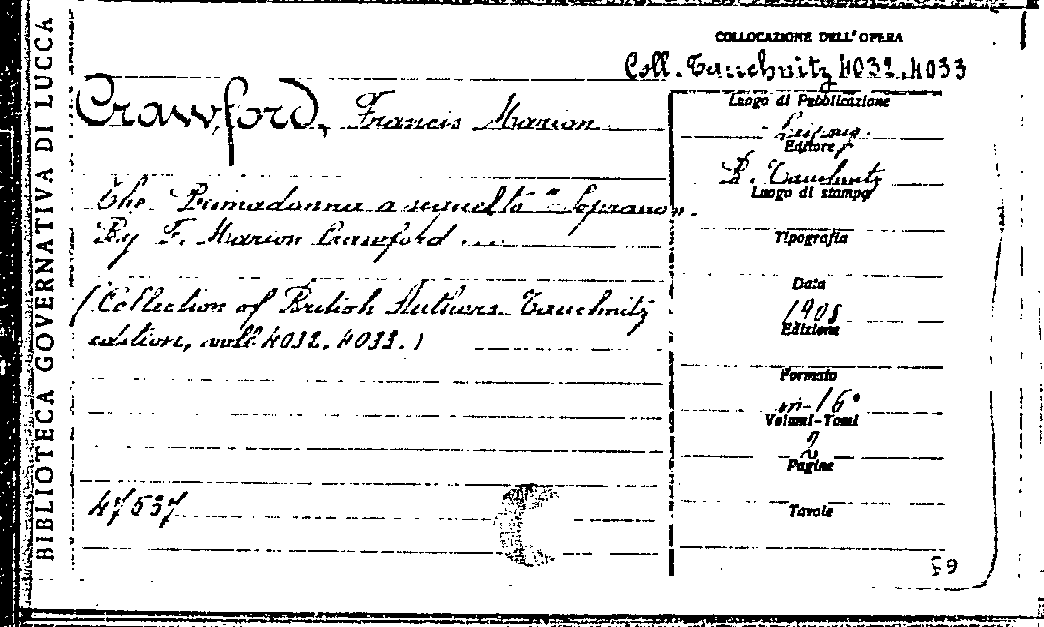 BIBLIOTECA GOVERNATIVA DI LUCCA
COLLOCAZIONE DELL' OPERA
Coll. Tauchnitz 4032.4033
Crawford, Francis Marion
The Primadonna a sequel to "Soprano".
By F. Marion Crawford ....
(Collection of British Authers. Tauchnitz
edition, voll 4032. 4033.)
47537
Luogo di Pubblicazione
Editore
B. Tauchnitz
Luogo di stampa
Tipografia
Data
1908
Edizione
Formato
in-16°
Volumi-Tomi
2
Pagine
Tavole